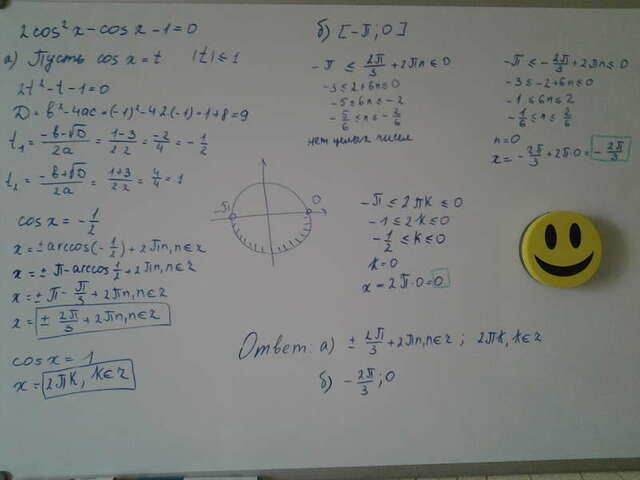 2cos²x-cosx-1=0
а) Пусть cosx=t |t|≤1
2t²-t-1=0
D=b²-4ac=(-1)²-4·2·(-1)=1+8=9
t₁=(-b-√D)/2a=(1-3)/2·2=-2/4=-1/2
t₂=(-b+√D)/2a=(1+3)/2·2=4/4=1
cosx=-1/2
x=±arccos(-1/2)+2Пn,n∈z
x=±П-arccos1/2+2Пn,n∈z
x=±П-П/3+2Пn,n∈z
x=±2П/3+2Пn,n∈z
cosx=1
x=2Пk,k∈z
-П 0
б) [-П;0]
-П≤2П/3+2Пn≤0
-3≤2+6n≤0
-5≤6n≤-2
-5/6≤n≤-2/6
нет целых чисел
-П≤-2П/3+2Пn≤0
-3≤-2+6n≤0
-1≤6n≤2
-1/6≤n≤2/6
n=0
x=-2П/3+2П·0=-2П/3
-П≤2Пk≤0
-1≤2k≤0
-1/2≤k≤0
k=0
x=2П·0=0
Ответ: а) ±2П/3+2Пn,n∈z; 2Пk,k∈z
б) -2П/3;0